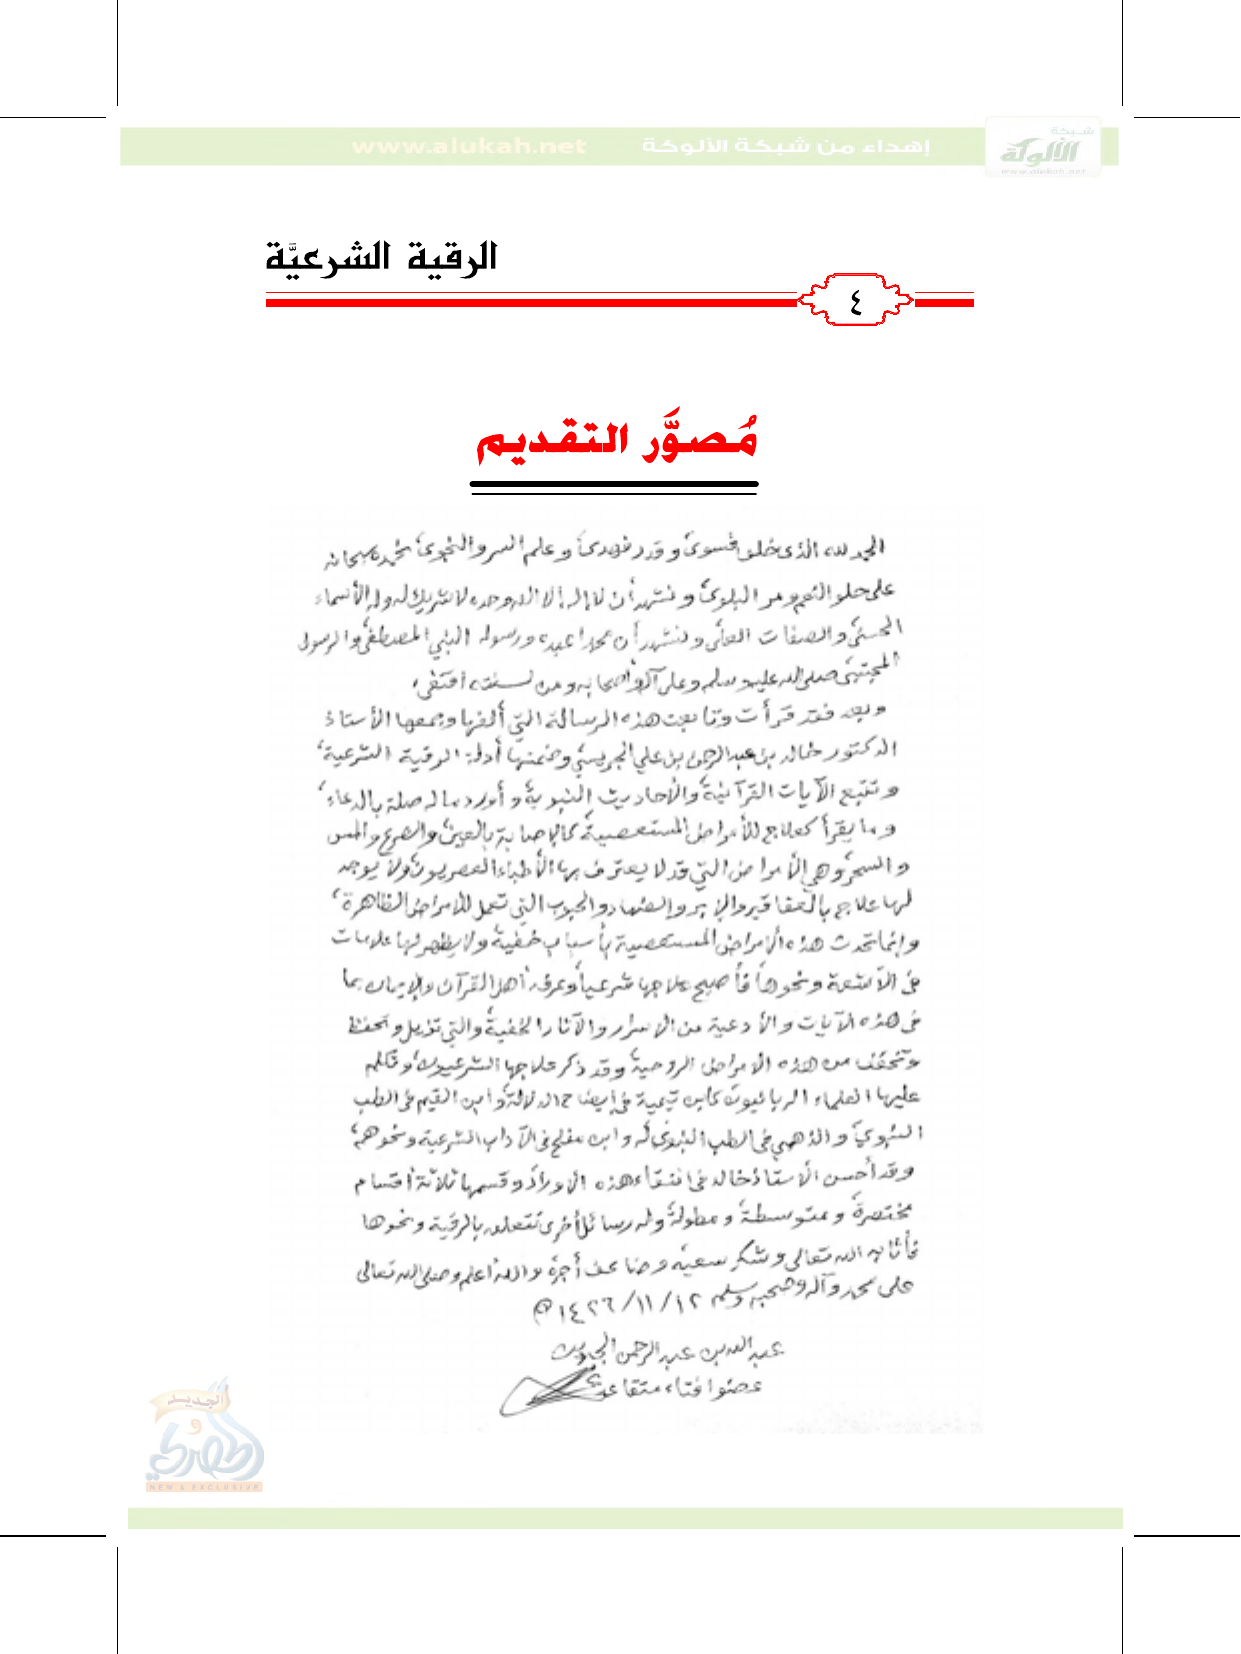 إهداء من شبكة الألوكة www.alukah.net
شبكة
الألوكة
www.alukah.net
الرقية الشرعيَّة
٤
مُصوَّر التقديم
الحمد لله الذي خلق فسوى، وقدر فهدى، وعلم السر والنجوى، نحمده سبحانه
على حلو النعم ومر البلوى، ونشهد أن لا إله إلا الله وحده لا شريك له، وله الأسماء
الحسنى والصفات العلى، ونشهد أن محمدا عبده ورسوله النبي المصطفى والرسول
المجتبى صلى الله عليه وسلم وعلى آله وأصحابه ومن لسنته اقتفى،
وبعد فقد قرأت وتابعت هذه الرسالة التي ألفها وجمعها الأستاذ
الدكتور خالد بن عبدالرحمن بن علي الجريسي وضمنها أدلة الرقية الشرعية،
وتتبع الآيات القرآنية، والأحاديث النبوية، وأورد ما له صلة بالدعاء،
وما يقرأ كعلاج للأمراض المستعصية، كالإصابة بالعين، والصرع والمس
والسحر، وهي الأمراض التي قد لا يعترف بها الأطباء العصريون، ولا يوجد
لها علاج بالعقاقير والإبر والضماد والحبوب التي تعمل للأمراض الظاهرة،
وإنما تحدث هذه الأمراض المستعصية بأسباب خفية، ولا يظهر لها علامات
في الأشعة ونحوها، فأصبح علاجها شرعياً، وعرف أهل القرآن والإيمان بما
في هذه الآيات والأدعية من الأسرار والآثار الخفية، والتي تزيل وتحفظ
وتخفف من هذه الأمراض الروحية، وقد ذكر علاجها الشرعيون، وتكلم
عليها العلماء الربانيون كابن تيمية في إيضاح الدلالة، وابن القيم في الطب
النبوي، والذهبي في الطب النبوي له، وابن مفلح في الآداب الشرعية ونحوهم،
وقد أحسن الأستاذ خالد في انتقاء هذه الأوراد، وقسمها ثلاثة أقسام
مختصرة، ومتوسطة، ومطولة، وله رسائل أخرى تتعلق بالرقية ونحوها
فأثابه الله تعالى وشكر سعيه وضاعف أجره، والله أعلم وصلى الله تعالى
على محمد وآله وصحبه وسلم ١٢/١١/١٤٢٦ه
عبدالله بن عبدالرحمن الجبرين
عضو افتاء متقاعد
الجديد
و
الحصري
NEW & EXCLUSIVE